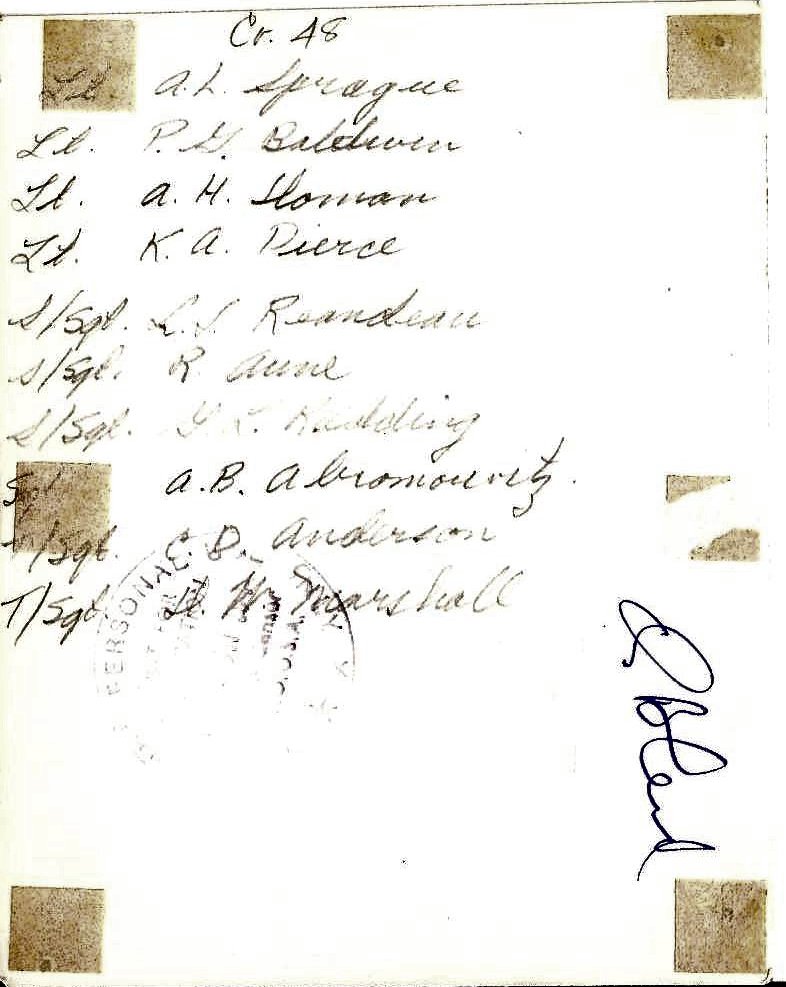 Cr. 48
Lt. A.L. Sprague
Lt. P.G. Baldwin
Lt. A.H. Homan
Lt. K.A. Pierce
S/Sgt. L.L. Reandeau
S/Sgt. R. Aune
S/Sgt. G.L. Redding
A.B. Abromowvitz.
/Sgt. C.D. Anderson
T/Sgt. W. Marshall
PERSONAL
U.S.A.